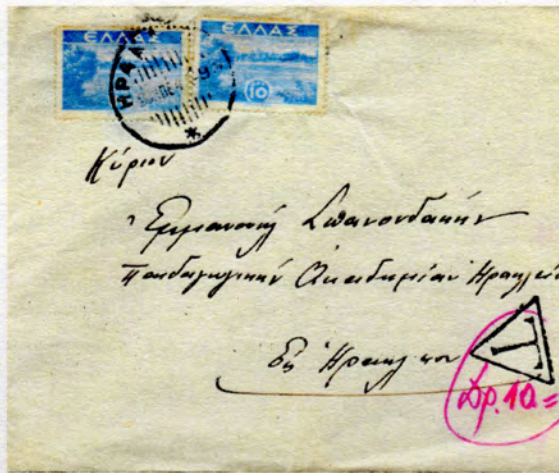 ΕΛΛΑΣ ΕΛΛΑΣ
ΗΡΑΚΛ
10
Κύριον
Εμμανουήλ Σπανουδάκην
Παιδαγωγικήν Ακαδημίαν Ηρακλείο
Εις Ηράκλειον
T
Δρ. 10=